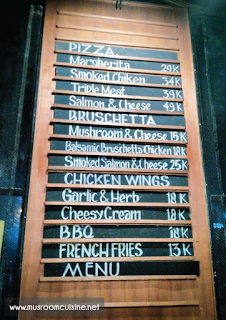 PIZZA
Margherita 29K
Smoked Chiken 34K
Triple Meat 39K
Salmon & Cheese 49K
BRUSCHETTA
Mushroom & Cheese 15K
Balsamic Bruschetta Chicken 18K
Smoked Salmon & Cheese 25K
CHICKEN WINGS
Garlic & Herb 18K
Cheesy Cream 18K
BBQ 18K
FRENCH FRIES 13K
MENU
www.musroomcuisine.net